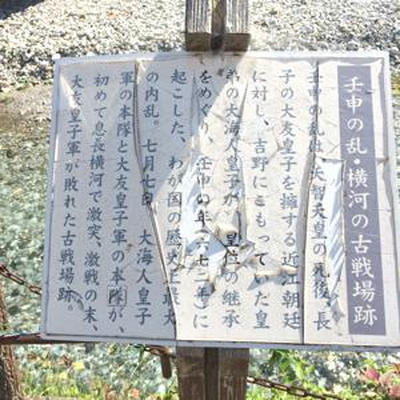 壬申の乱・横河の古戦場跡
壬申の乱は、天智天皇の死後、長
子の大友皇子を擁する近江朝廷
に対し、吉野にこもっていた皇
弟の大海人皇子が、皇位の継承
をめぐり、壬申の年(六七二年)に
起こした、わが国の歴史上最大
の内乱。七月七日、大海人皇子
軍の本隊と大友皇子軍の本隊が、
初めて息長横河で激突、激戦の末、
大友皇子軍が敗れた古戦場跡。